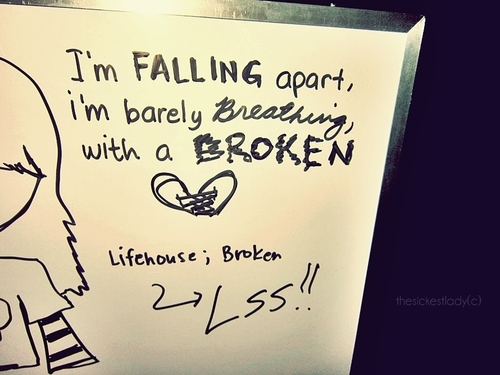 I'm FALLING apart,
i'm barely Breathing,
with a BROKEN
Lifehouse; Broken
LSS!!
thesickestlady(c)